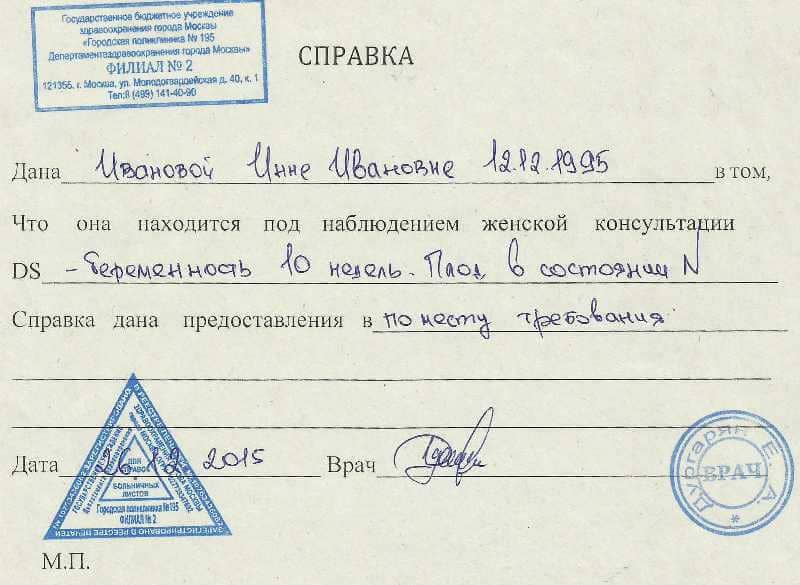 Государственное бюджетное учреждение
здравоохранения города Москвы
«Городская поликлиника № 195
Департаментаздравоохранения города Москвы»
ФИЛИАЛ № 2
121355. г. Москва, ул. Молодогвардейская д. 40, к. 1
Тел:8 (499) 141-40-90
СПРАВКА
Дана Ивановой Инне Ивановне 12.12.1995 в том,
Что она находится под наблюдением женской консультации
DS – беременность 10 недель. Плод в состоянии N
Справка дана предоставления в по месту требования
Дата 26 12 2015 Врач
ДЛЯ
СПРАВОК
БОЛЬНИЧНЫХ
ЛИСТОВ
Городская поликлиника №195
ФИЛИАЛ № 2
ЗАРЕГИСТРИРОВАНО В РЕЕСТРЕ ПЕЧАТЕЙ
Дургарян Е.А.
ВРАЧ
М.П.